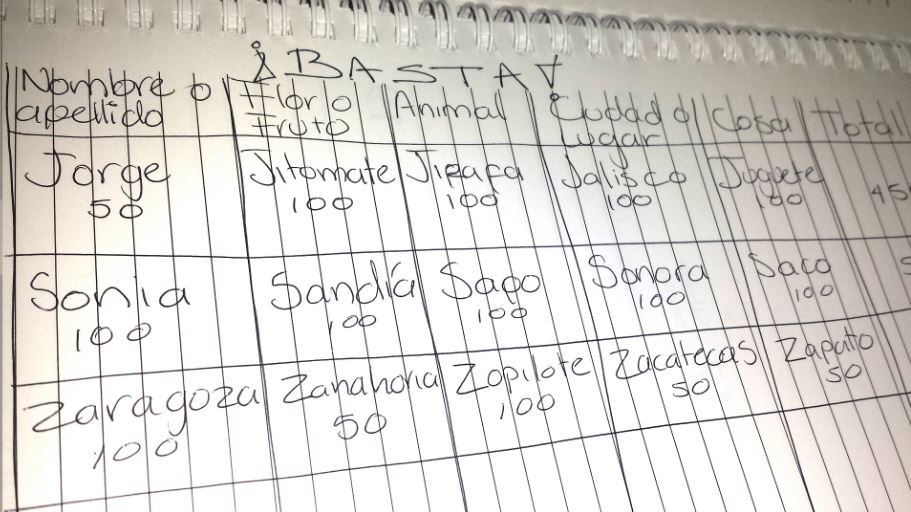 ¡BASTA!
Nombre o apellido | Flor o Fruto | Animal | Ciudad o lugar | Cosa | Total
Jorge | Jitomate | Jirafa | Jalisco | Juguete
50 | 100 | 100 | 100 | 100 | 45
Sonia | Sandía | Sapo | Sonora | Saco
100 | 100 | 100 | 100 | 100
Zaragoza | Zanahoria | Zopilote | Zacatecas | Zapato
100 | 50 | 100 | 50 | 50